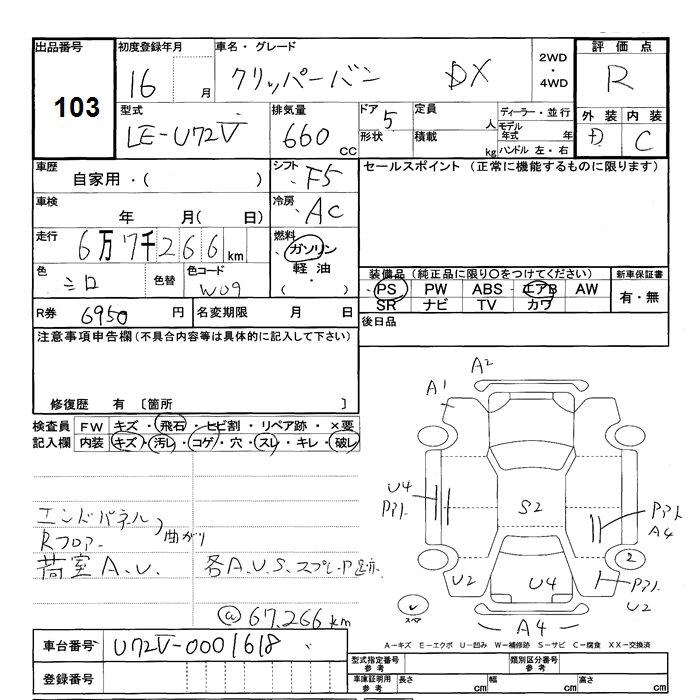 出品番号
103
初度登録年月
16 月
車名・グレード
クリッパーバン DX
2WD
・
4WD
評価点
R
型式
LE-U72V
排気量
660 CC
ドア 5
形状
定員 人
積載 kg
ディーラー・並行
モデル年式 年
ハンドル 左・右
外装 内装
D C
車歴
自家用・( )
シフト
F5
セールスポイント (正常に機能するものに限ります)
車検
年 月( 日)
冷房
AC
走行
6万7千266km
燃料
・ガソリン
軽油
・( )
色
シロ
色替
色コード
W09
装備品 (純正品に限り○をつけてください)
PS PW ABS エアB AW
SR ナビ TV カワ
新車保証書
有・無
R券 6950 円
名変期限 月 日
後日品
注意事項申告欄 (不具合内容等は具体的に記入して下さい)
修復歴 有 〔箇所 〕
検査員記入欄
FW キズ・飛石・ヒビ割・リペア跡・×要
内装 キズ・汚レ・コゲ・穴・スレ・キレ・破レ
エンドパネル
Rフロアー 曲がり
荷室A.U. 各A.U.S.スプレーP跡.
@67.266km
A2
A1
U4
Pアト.
S2
Pアト
A4
2
U2
U4
Pアト
U2
スペア
A4
車台番号 U72V-0001618
登録番号
A-キズ E-エクボ U-凹み W-補修跡 S-サビ C-腐食 XX-交換済
型式指定番号
参考
類別区分番号
参考
車庫証明用
参考
長さ cm 幅 cm 高さ cm